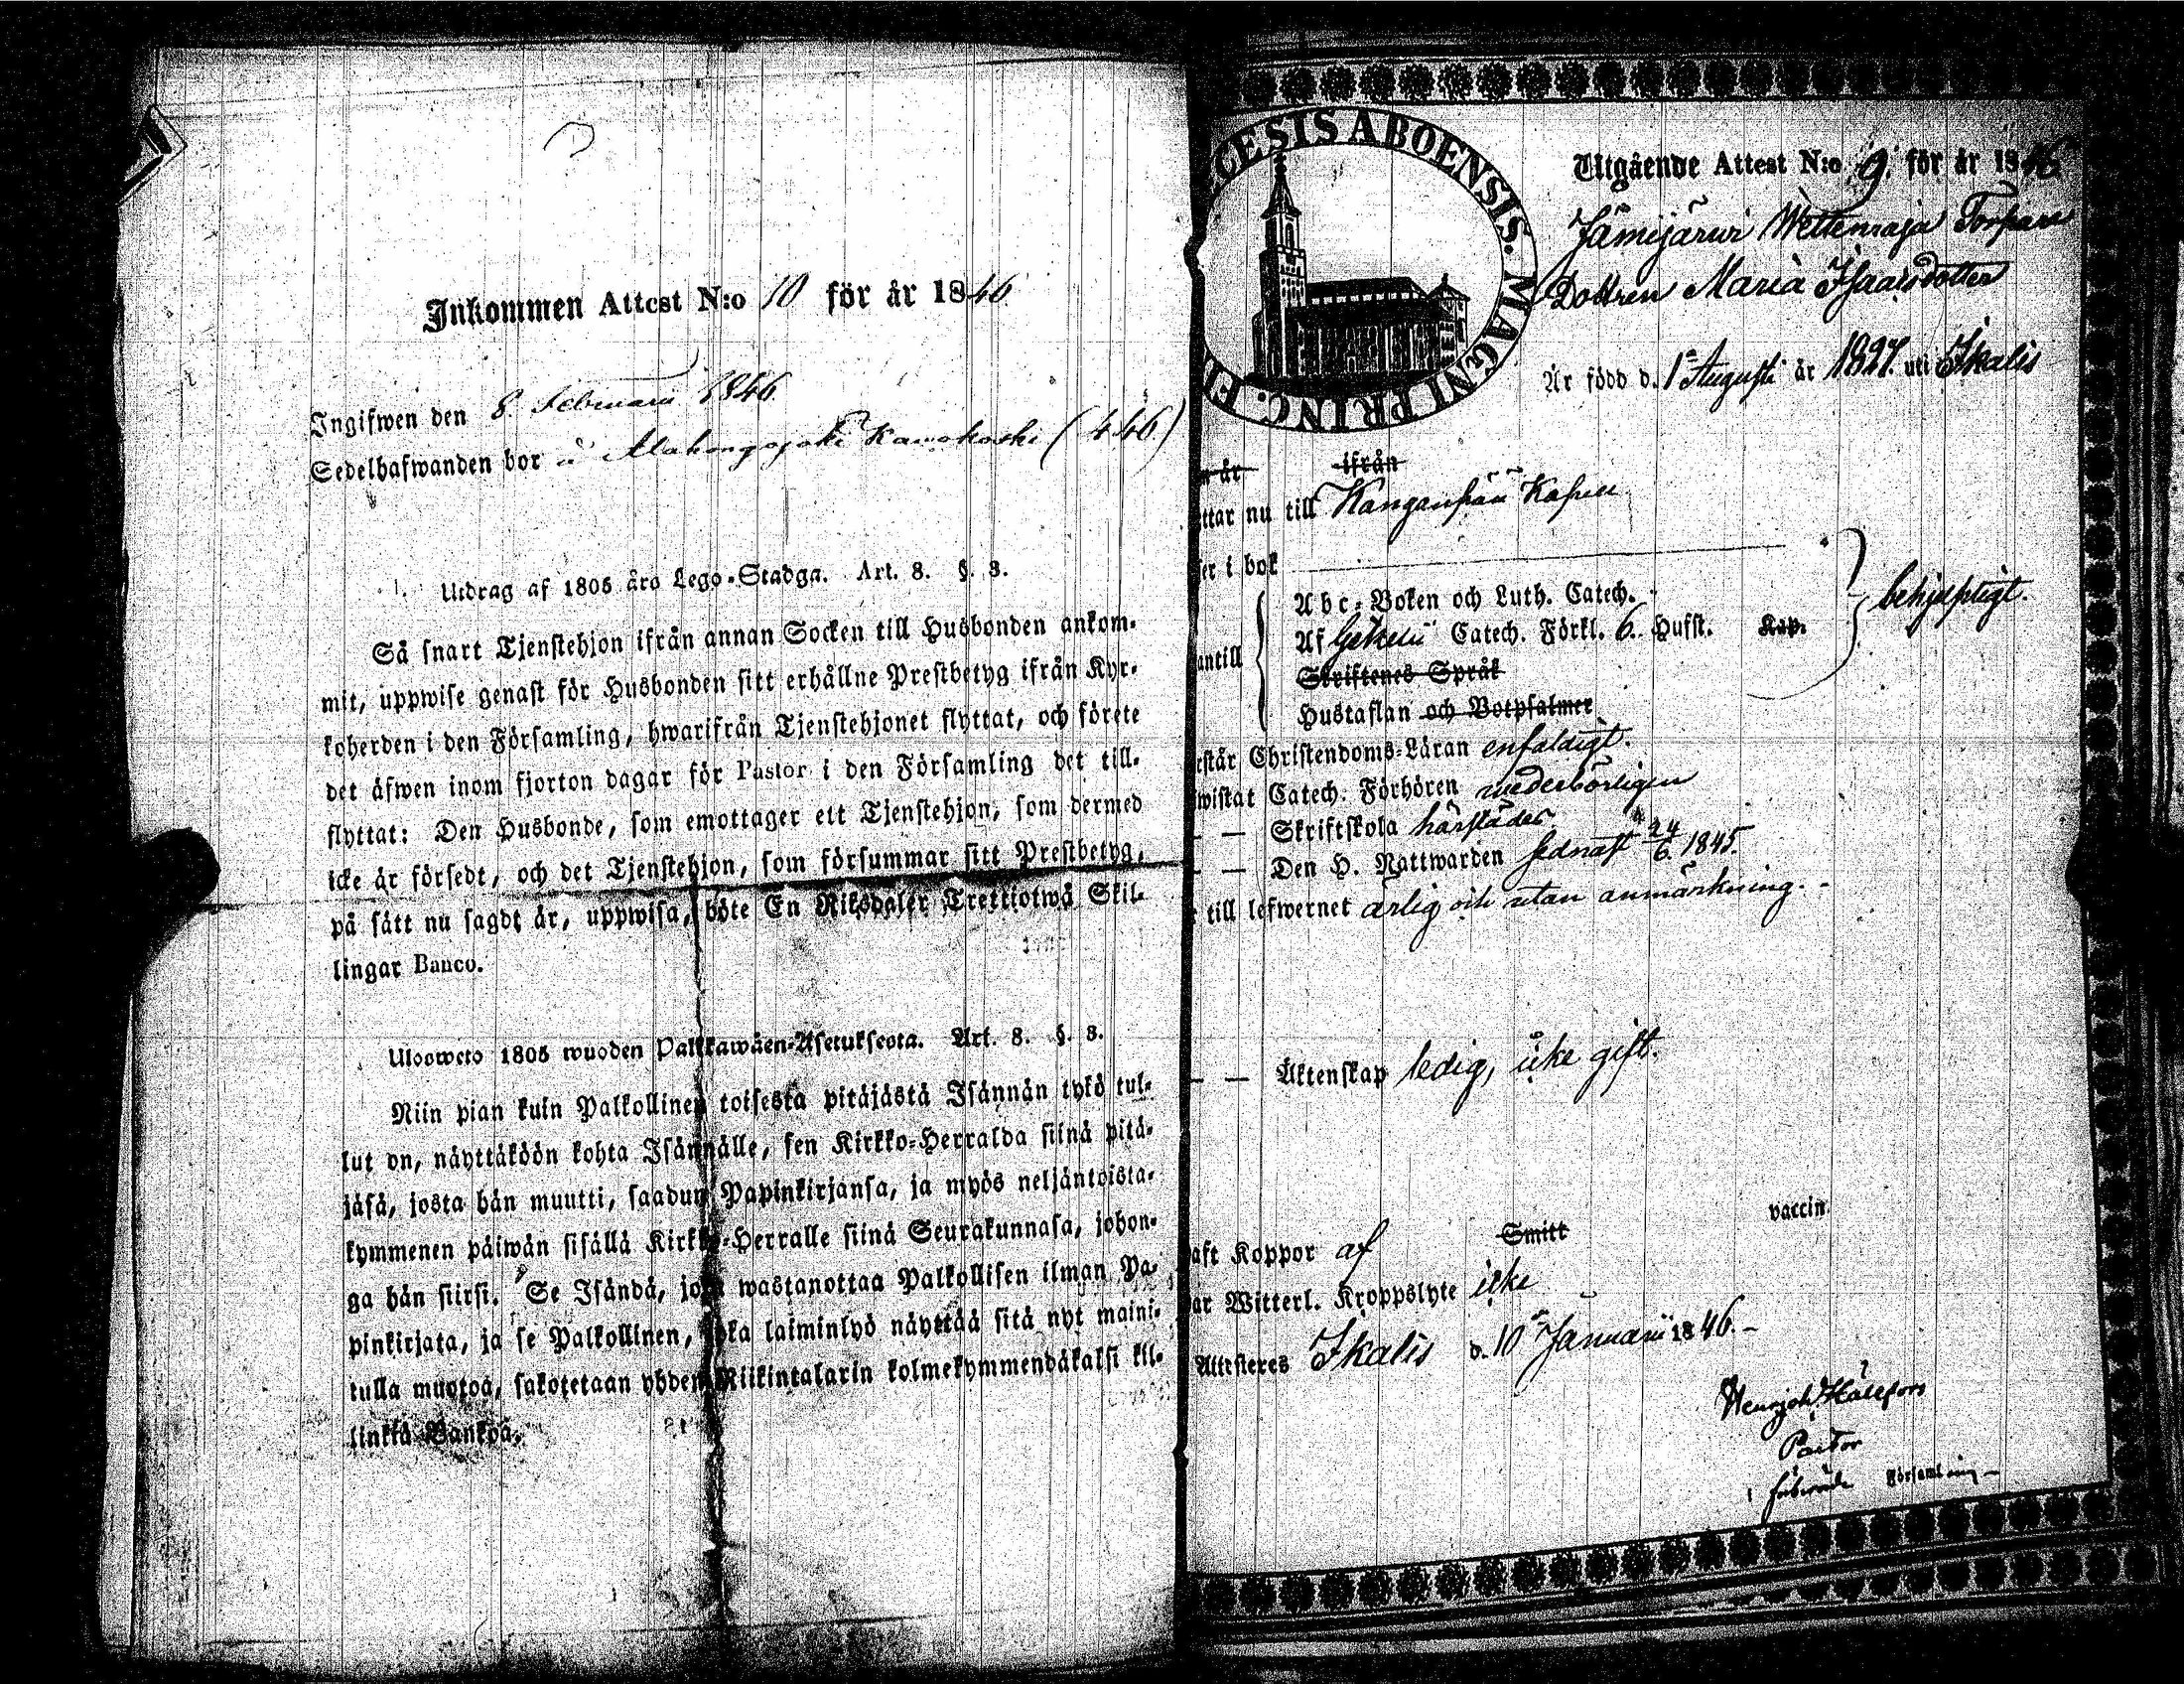 Inkommen Attest N:o 10 för år 1846
Ingifwen den 8 Februarii 1846.
Sedelhafwanden bor å Alahongojoki (446)
Utdrag af 1805 års Lego-Stadga. Art. 8. §. 3.
Så snart Tjenstehjon ifrån annan Socken till Husbonden ankom-
mit, uppwise genast för Husbonden sitt erhållne Prestbetyg ifrån Kyr-
koherden i den Församling, hwarifrån Tjenstehjonet flyttat, och förete
det äfwen inom fjorton dagar för Pastor i den Församling det till-
flyttat: Den Husbonde, som emottager ett Tjenstehjon, som dermed
icke är försedt, och det Tjenstehjon, som försummar sitt Prestbetyg,
på sätt nu sagdt är, uppwisa, böte En Riksdaler Trettiotwå Skil-
lingar Banco.
Ulosweto 1805 wuoden Palkkawäen-Asetuksesta. Art. 8. §. 3.
Niin pian kuin Palkollinen toisesta pitäjästä Isännän tykö tul-
lut on, näyttäköön kohta Isännälle, sen Kirkko-Herralda siinä pitä-
jäsä, josta hän muutti, saadun Papinkirjansa, ja myös neljäntoista-
kymmenen päiwän sisällä Kirkko-Herralle siinä Seurakunnasa, johon-
ga hän siirsi. Se Isändä, joka wastanottaa Palkollisen ilman Pa-
pinkirjata, ja se Palkollinen, joka laiminlyö näyttää sitä nyt maini-
tulla muotoa, sakotetaan yhden Riikintalarin kolmekymmendäkaksi kil-
linkiä Bankoa.
DIOECESIS ABOENSIS. MAGNI PRINC.
Utgående Attest N:o 9 för år 1846
Jämijärwi Wettenraja Torpare
Dottren Maria Isaacsdotter
Är född d. 1 Augusti år 1827. uti Ikalis
n år ifrån
ttar nu till Kanganpää Kapell
ser i bok
Abc-Boken och Luth. Catech.
Af Gezelii Catech. Förkl. 6. Hufst. Kap. behjelpligt.
antill
Skriftenes Språk
Hustaflan och Botpsalmer
rstår Christendoms-Läran enfaldigt.
wistat Catech. Förhören wederbörligen
— — Skriftskola härstädes
— — Den H. Nattwarden sednast 24/6. 1845.
till lefwernet ärlig och utan anmärkning.
— — Äktenskap ledig, icke gift.
aft Koppor af Smitt vaccin.
ar Witterl. Kroppslyte icke
Attesteres Ikalis d. 10 Januarii 1846.
Pastor
i Församling